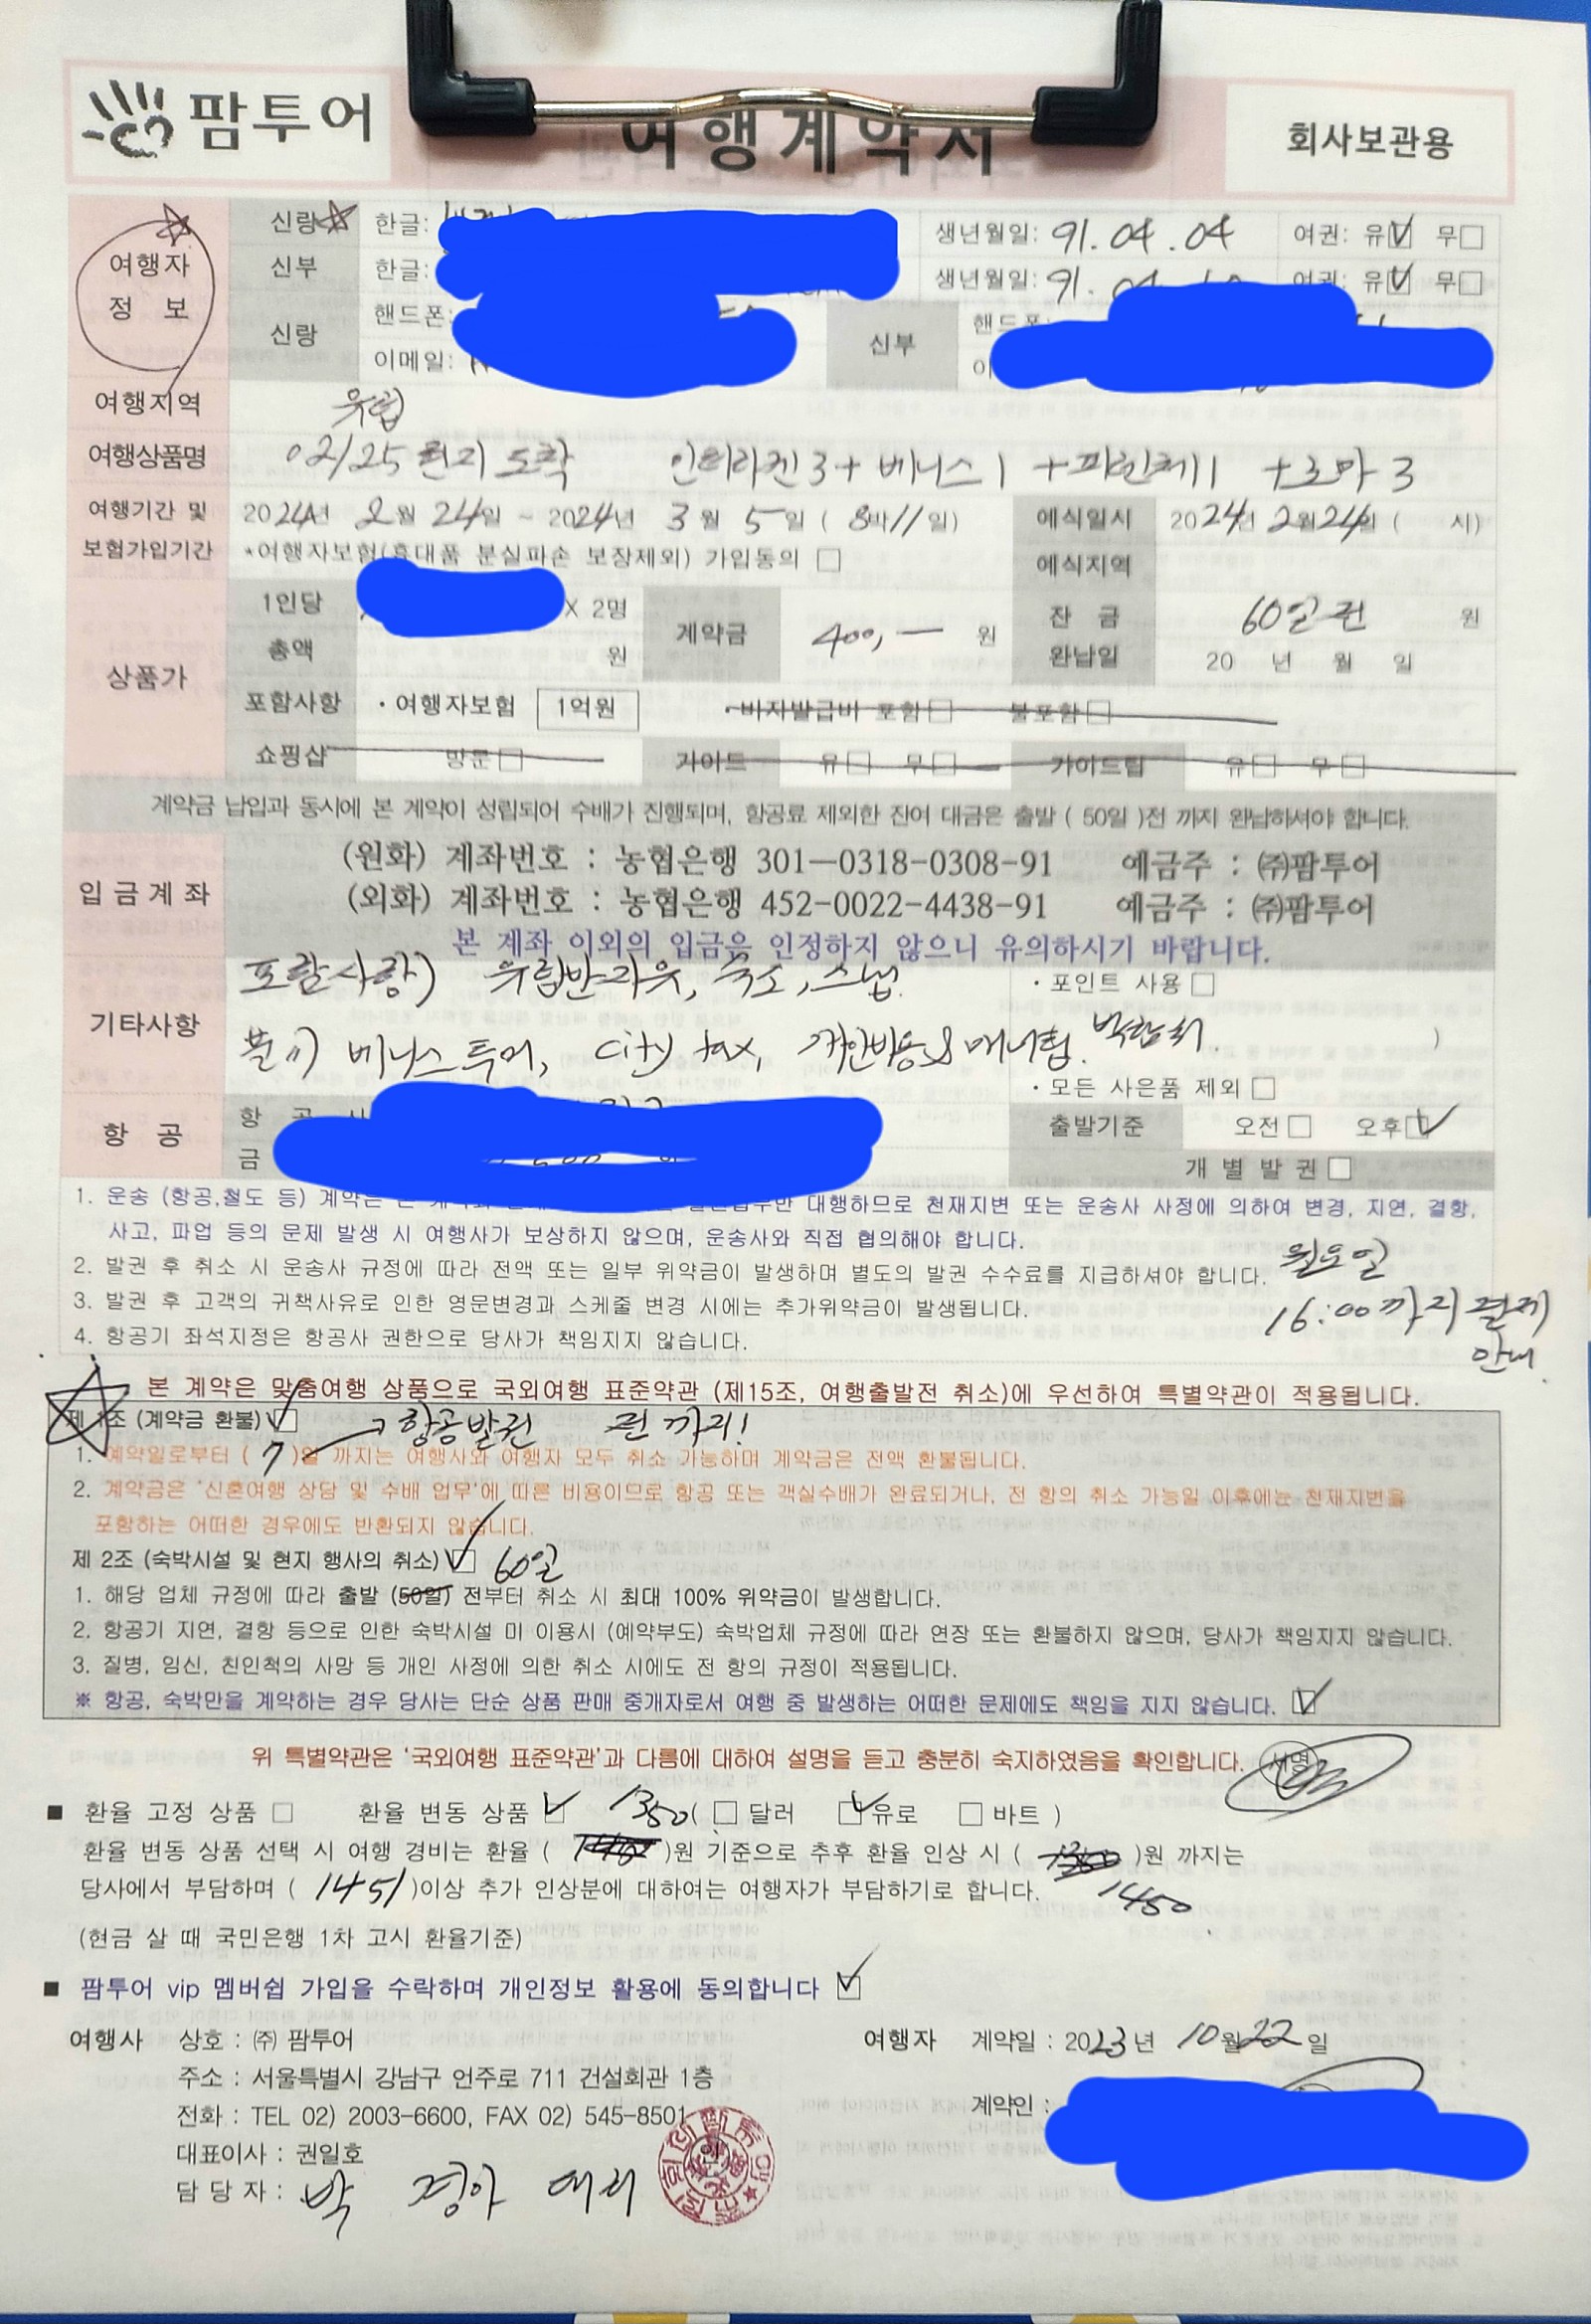 팜투어
여행계약서
회사보관용
여행자 정 보
신랑 한글: 생년월일: 91.04.04 여권: 유☑ 무□
신부 한글: 생년월일: 91. 여권: 유☑ 무□
신랑 핸드폰: 신부 핸드폰:
이메일:
여행지역 유럽
여행상품명 02/25 현지 도착 인터라켄 3 + 베니스 1 + 피렌체 1 + 로마 3
여행기간 및 2024년 2월 24일 ~ 2024년 3월 5일 ( 8박 11일) 예식일시 2024년 2월 24일 ( 시)
보험가입기간 *여행자보험(휴대품 분실파손 보장제외) 가입동의 □ 예식지역
상품가
1인당 X 2명 계약금 400,— 원 잔 금 60일 전 원
총액 원 완납일 20 년 월 일
포함사항 · 여행자보험 1억원 · 비자발급비 포함□ 불포함□
쇼핑샵 방문□ 가이드 유□ 무□ 가이드팁 유□ 무□
계약금 납입과 동시에 본 계약이 성립되어 수배가 진행되며, 항공료 제외한 잔여 대금은 출발 ( 50일 )전 까지 완납하셔야 합니다.
입금계좌
(원화) 계좌번호 : 농협은행 301—0318-0308-91 예금주 : ㈜팜투어
(외화) 계좌번호 : 농협은행 452-0022-4438-91 예금주 : ㈜팜투어
본 계좌 이외의 입금은 인정하지 않으니 유의하시기 바랍니다.
기타사항
포함사항) 유럽반자유, 숙소, 스냅. · 포인트 사용□
불 ) 베니스 투어, city tax, 개인비용 & 매너팁. )
· 모든 사은품 제외□
항 공
항 공 사 출발기준 오전□ 오후☑
금 개 별 발 권□
1. 운송 (항공,철도 등) 계약은 대행하므로 천재지변 또는 운송사 사정에 의하여 변경, 지연, 결항,
사고, 파업 등의 문제 발생 시 여행사가 보상하지 않으며, 운송사와 직접 협의해야 합니다.
2. 발권 후 취소 시 운송사 규정에 따라 전액 또는 일부 위약금이 발생하며 별도의 발권 수수료를 지급하셔야 합니다.
3. 발권 후 고객의 귀책사유로 인한 영문변경과 스케줄 변경 시에는 추가위약금이 발생됩니다.
4. 항공기 좌석지정은 항공사 권한으로 당사가 책임지지 않습니다.
월요일
16:00까지 결제
안내.
본 계약은 맞춤여행 상품으로 국외여행 표준약관 (제15조, 여행출발전 취소)에 우선하여 특별약관이 적용됩니다.
제 1조 (계약금 환불) ☑ → 항공발권 전 까지!
1. 예약일로부터 ( 7 )일 까지는 여행사와 여행자 모두 취소 가능하며 계약금은 전액 환불됩니다.
2. 계약금은 '신혼여행 상담 및 수배 업무'에 따른 비용이므로 항공 또는 객실수배가 완료되거나, 전 항의 취소 가능일 이후에는 천재지변을
포함하는 어떠한 경우에도 반환되지 않습니다.
제 2조 (숙박시설 및 현지 행사의 취소) ☑ 60일
1. 해당 업체 규정에 따라 출발 (50일) 전부터 취소 시 최대 100% 위약금이 발생합니다.
2. 항공기 지연, 결항 등으로 인한 숙박시설 미 이용시 (예약부도) 숙박업체 규정에 따라 연장 또는 환불하지 않으며, 당사가 책임지지 않습니다.
3. 질병, 임신, 친인척의 사망 등 개인 사정에 의한 취소 시에도 전 항의 규정이 적용됩니다.
※ 항공, 숙박만을 계약하는 경우 당사는 단순 상품 판매 중개자로서 여행 중 발생하는 어떠한 문제에도 책임을 지지 않습니다. ☑
위 특별약관은 '국외여행 표준약관'과 다름에 대하여 설명을 듣고 충분히 숙지하였음을 확인합니다. 서명
■ 환율 고정 상품 □ 환율 변동 상품 ☑ 1350( □ 달러 ☑유로 □ 바트 )
환율 변동 상품 선택 시 여행 경비는 환율 ( )원 기준으로 추후 환율 인상 시 ( 1350 )원 까지는
당사에서 부담하며 ( 1451 )이상 추가 인상분에 대하여는 여행자가 부담하기로 합니다. 1450
(현금 살 때 국민은행 1차 고시 환율기준)
■ 팜투어 vip 멤버쉽 가입을 수락하며 개인정보 활용에 동의합니다 ☑
여행사 상호 : ㈜ 팜투어 여행자 계약일 : 2023년 10월 22일
주소 : 서울특별시 강남구 언주로 711 건설회관 1층
전화 : TEL 02) 2003-6600, FAX 02) 545-8501 계약인 :
대표이사 : 권일호
담 당 자 : 박 경아 대리 인